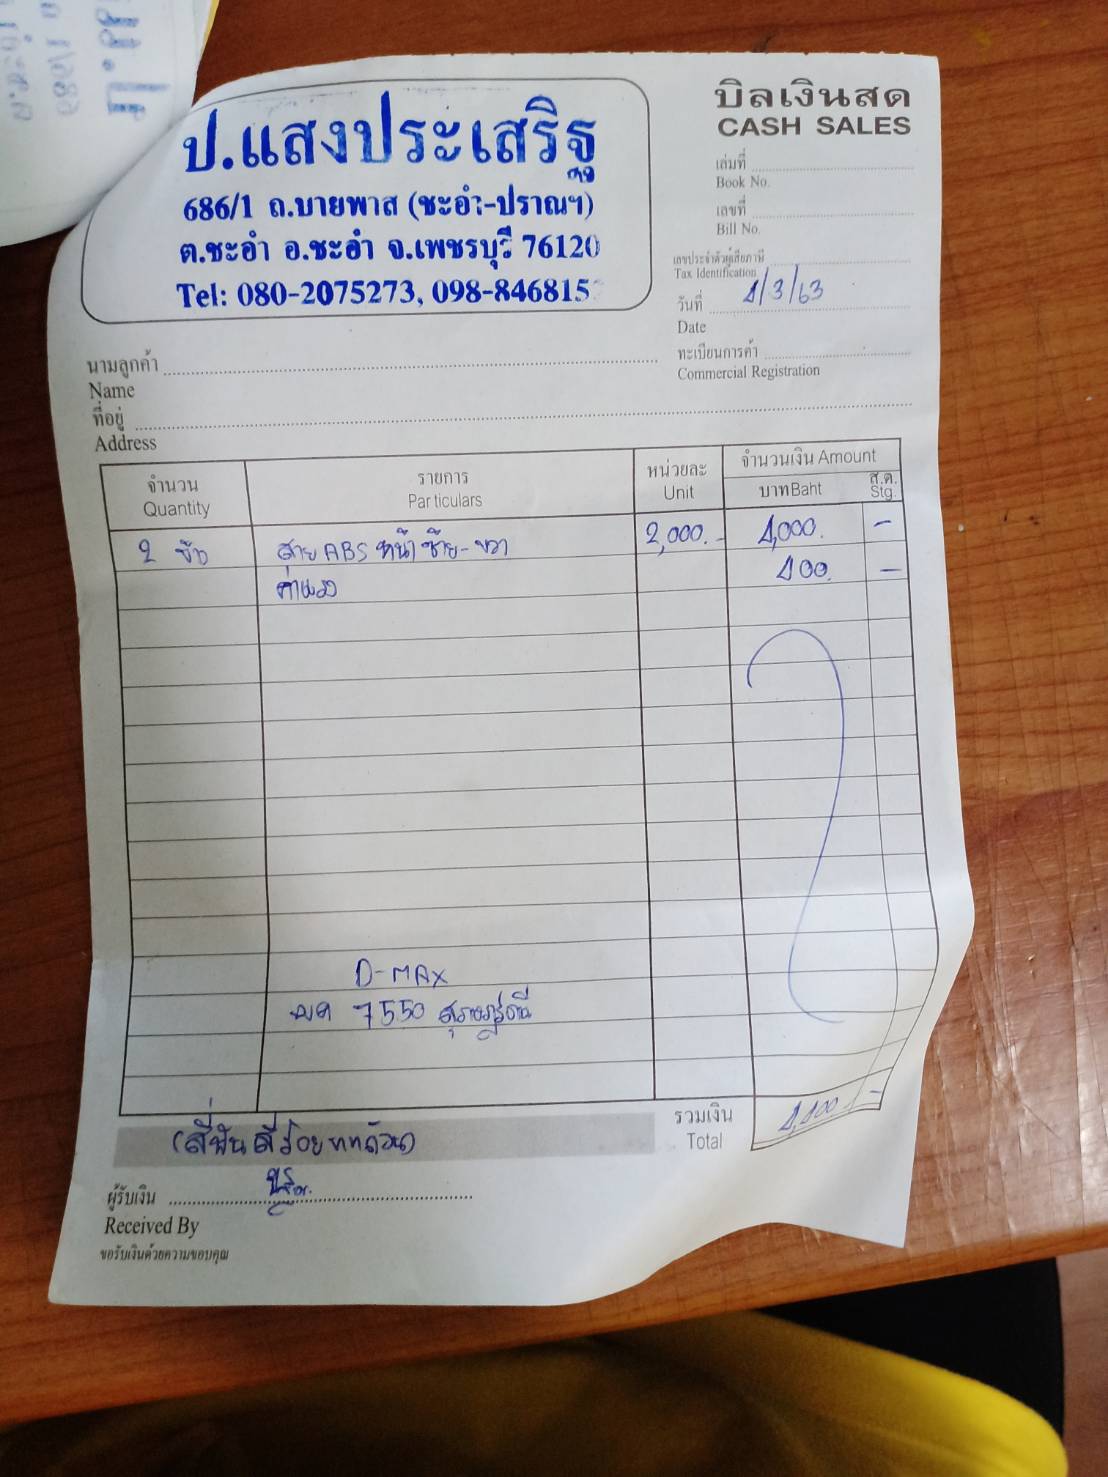 ป.แสงประเสริฐ
686/1 ถ.บายพาส (ชะอำ-ปราณฯ)
ต.ชะอำ อ.ชะอำ จ.เพชรบุรี 76120
Tel: 080-2075273, 098-846815
บิลเงินสด
CASH SALES
เล่มที่
Book No.
เลขที่
Bill No.
เลขประจำตัวผู้เสียภาษี
Tax Identification
วันที่ 4/3/63
Date
ทะเบียนการค้า
Commercial Registration
นามลูกค้า
Name
ที่อยู่
Address
จำนวน รายการ หน่วยละ จำนวนเงิน Amount
Quantity Particulars Unit บาท Baht ส.ต. Stg.
2 สาย ABS หน้า ซ้าย-ขวา 2,000.- 4,000. -
ค่าแรง 400. -
D-MAX
7550 สุราษฎร์ธานี
รวมเงิน 4,400 -
Total
(สี่พันสี่ร้อยบาทถ้วน)
ผู้รับเงิน
Received By
ขอรับเงินด้วยความขอบคุณ